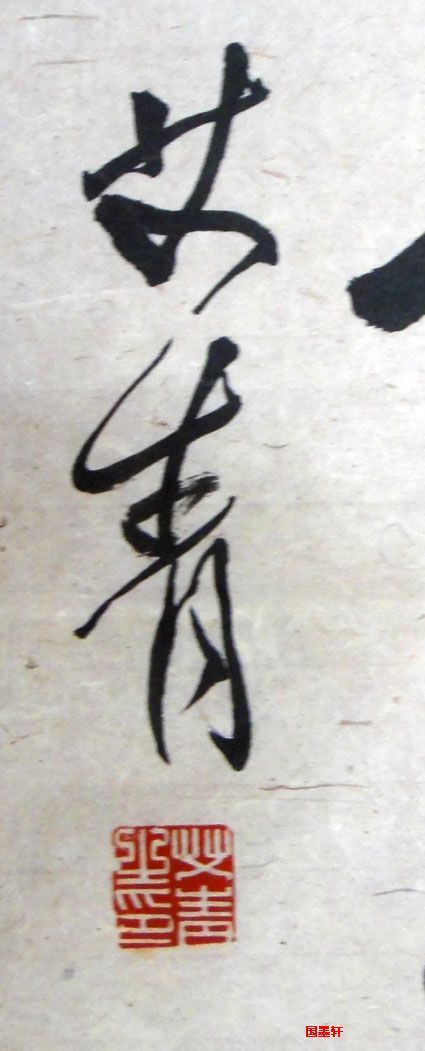 艾青
艾青之印
国墨轩